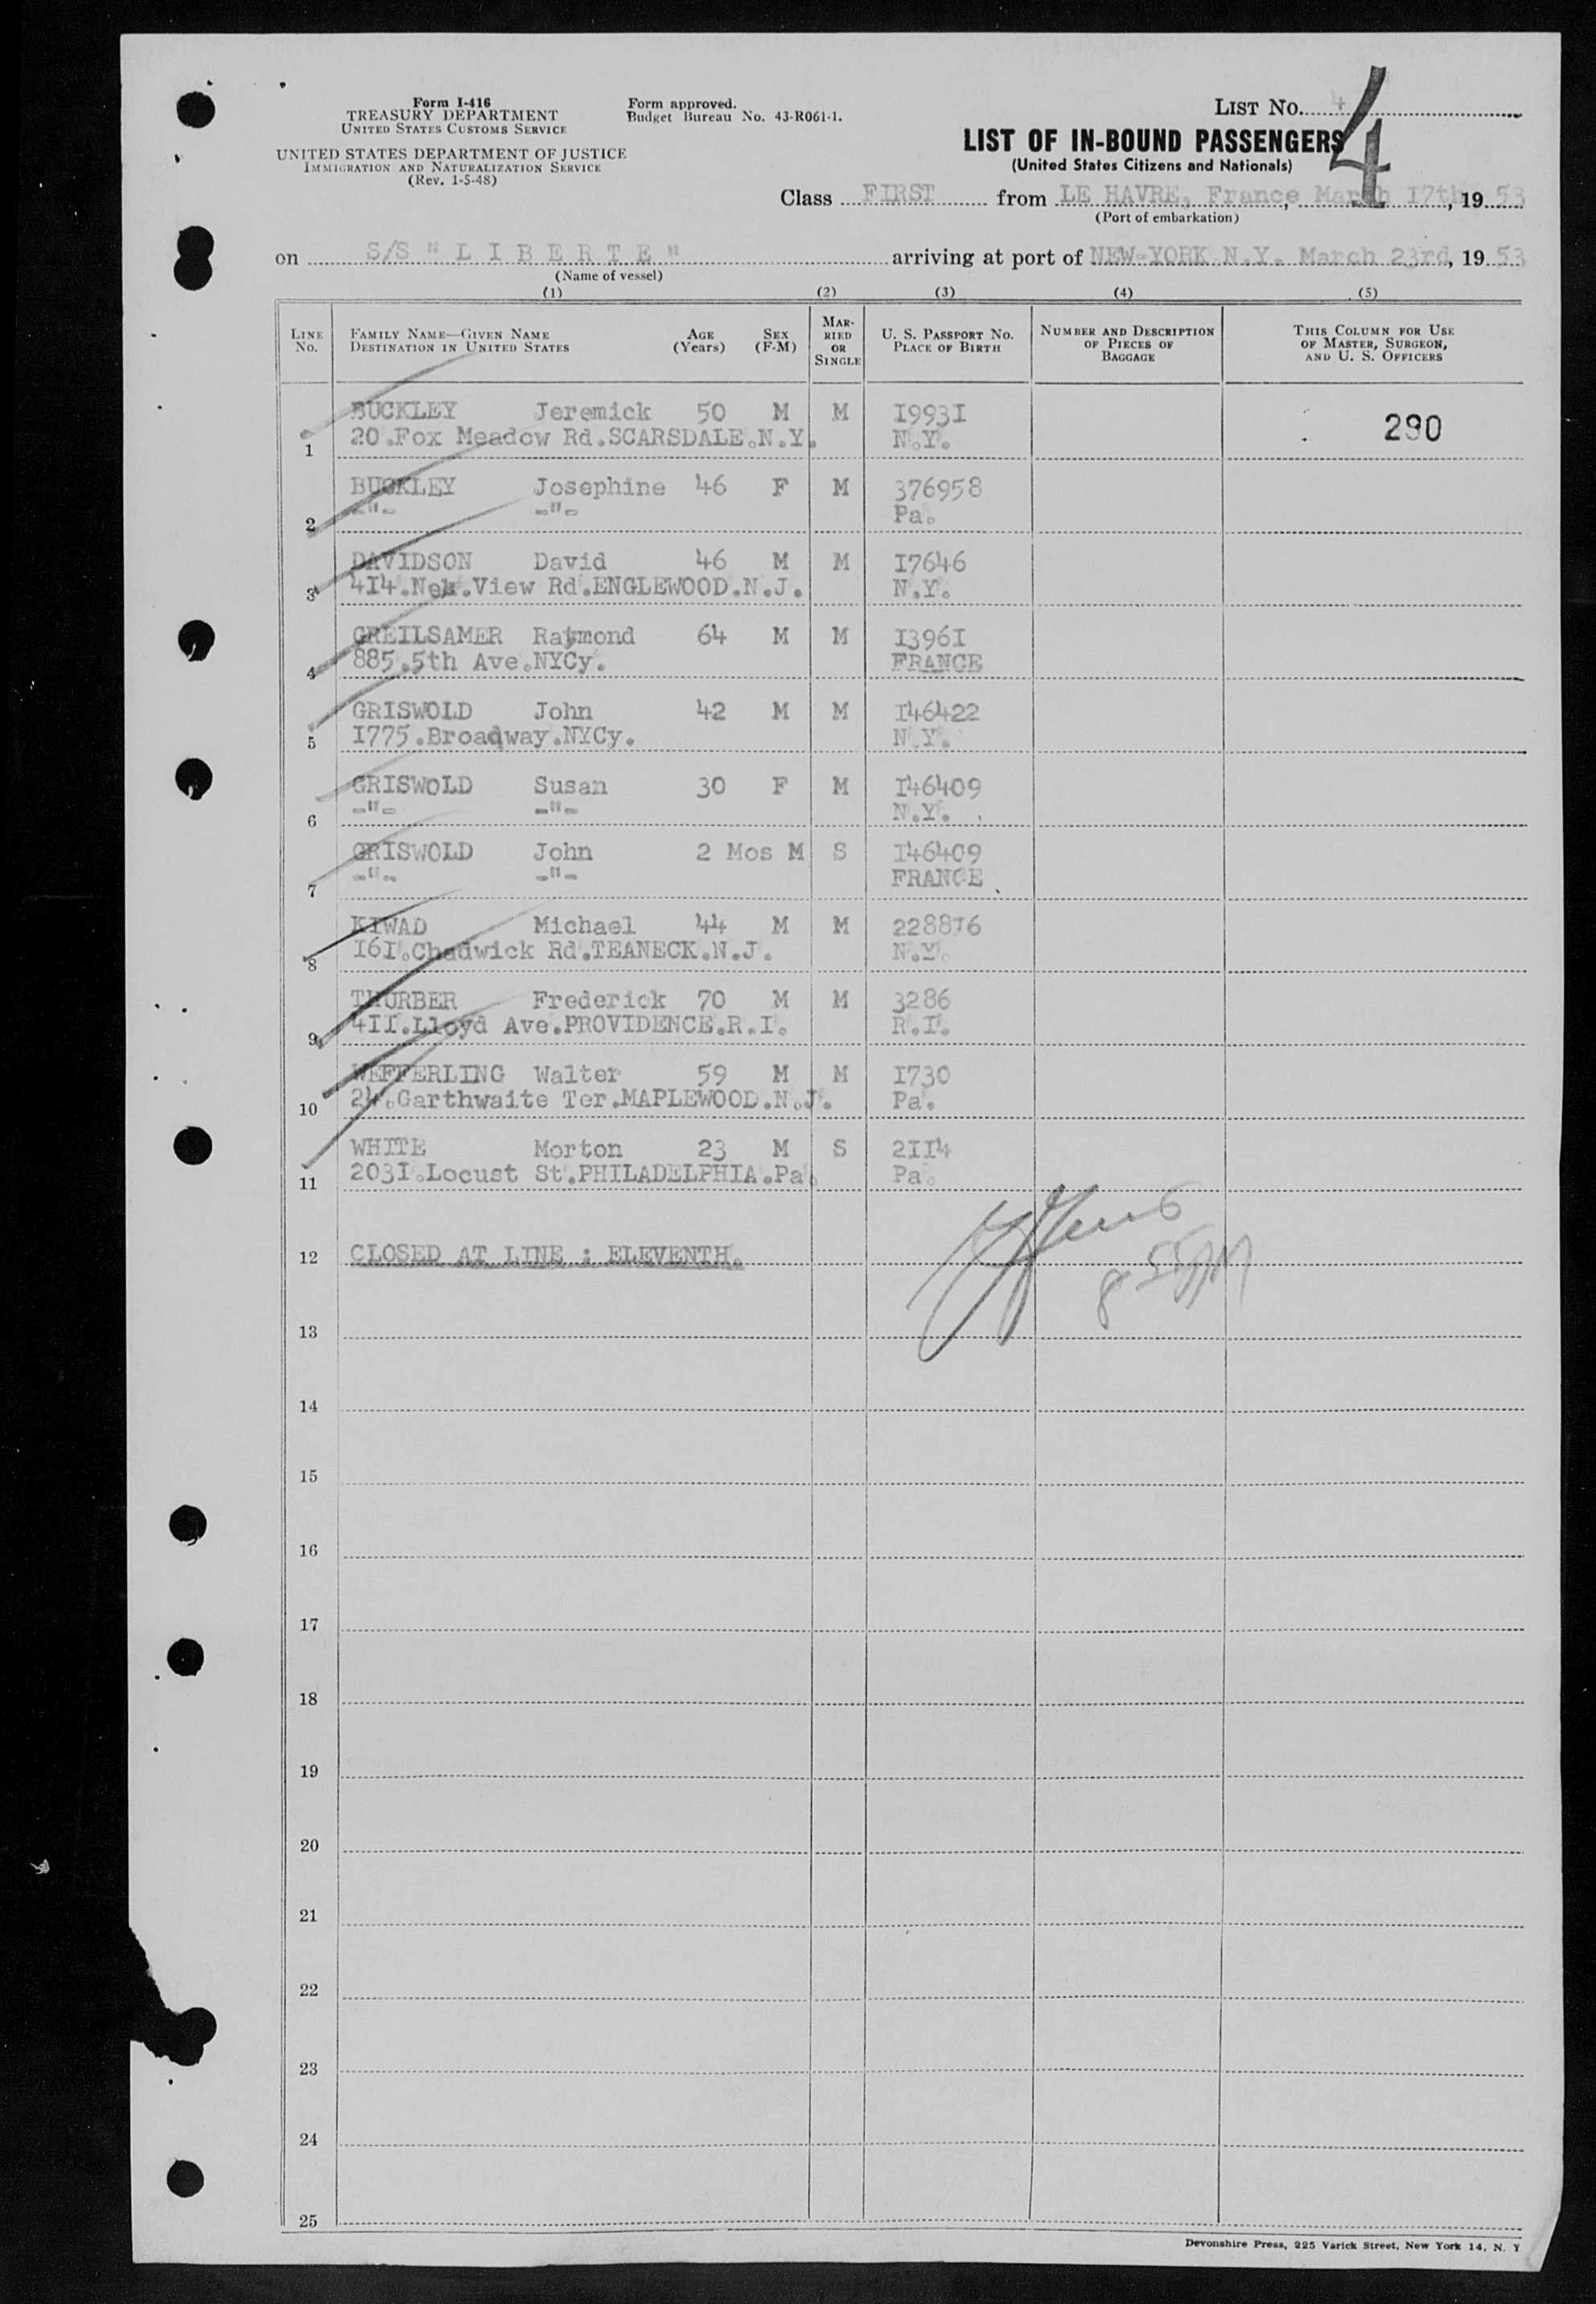 Form I-416
TREASURY DEPARTMENT
UNITED STATES CUSTOMS SERVICE
UNITED STATES DEPARTMENT OF JUSTICE
IMMIGRATION AND NATURALIZATION SERVICE
(Rev. 1-5-48)
Form approved.
Budget Bureau No. 43-R061-1.
LIST No. 4
4
LIST OF IN-BOUND PASSENGERS
(United States Citizens and Nationals)
Class FIRST from LE HAVRE, France, March 17th, 1953
(Port of embarkation)
on S/S "L I B E R T E" arriving at port of NEW-YORK N.Y. March 23rd, 1953
(Name of vessel)
(1) (2) (3) (4) (5)
LINE No. FAMILY NAME—GIVEN NAME DESTINATION IN UNITED STATES AGE (Years) SEX (F-M) MARRIED OR SINGLE U. S. PASSPORT No. PLACE OF BIRTH NUMBER AND DESCRIPTION OF PIECES OF BAGGAGE THIS COLUMN FOR USE OF MASTER, SURGEON, AND U. S. OFFICERS
BUCKLEY Jeremick 50 M M I993I 290
1 20.Fox Meadow Rd.SCARSDALE.N.Y. N.Y.
BUCKLEY Josephine 46 F M 376958
2 -"- -"- Pa.
DAVIDSON David 46 M M I7646
3 4I4.Nek.View Rd.ENGLEWOOD.N.J. N.Y.
GREILSAMER Raymond 64 M M I396I
4 885.5th Ave.NYCy. FRANCE
GRISWOLD John 42 M M I46422
5 I775.Broadway.NYCy. N.Y.
GRISWOLD Susan 30 F M I46409
6 -"- -"- N.Y.
GRISWOLD John 2 Mos M S I46409
7 -"- -"- FRANCE
KIWAD Michael 44 M M 2288I6
8 I6I.Chadwick Rd.TEANECK.N.J. N.Y.
THURBER Frederick 70 M M 3286
9 4II.Lloyd Ave.PROVIDENCE.R.I. R.I.
WEFFERLING Walter 59 M M I730
10 24.Garthwaite Ter.MAPLEWOOD.N.J. Pa.
WHITE Morton 23 M S 2II4
11 203I.Locust St.PHILADELPHIA.Pa. Pa.
12 CLOSED AT LINE : ELEVENTH.
13
14
15
16
17
18
19
20
21
22
23
24
25
Devonshire Press, 225 Varick Street, New York 14, N. Y.